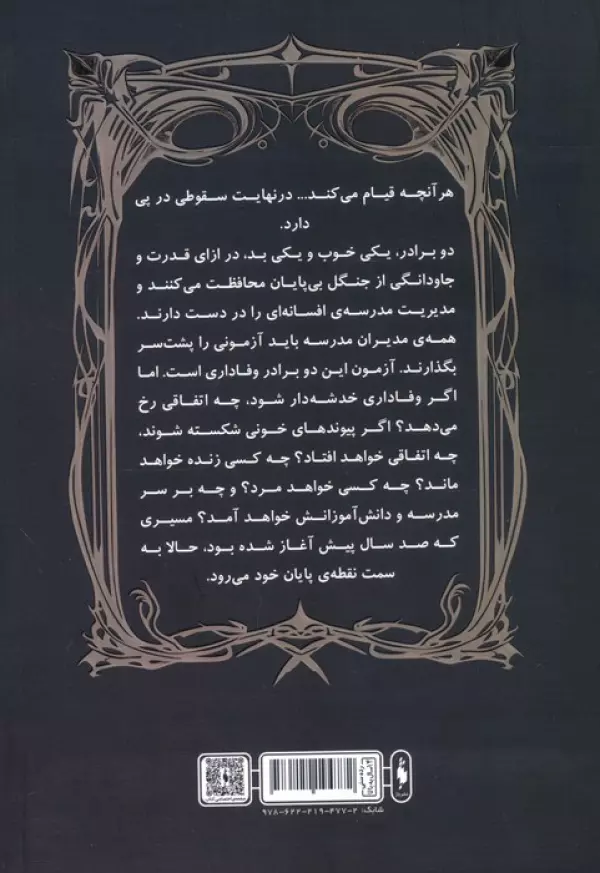 هرآنچه قیام می‌کند... درنهایت سقوطی در پی
دارد.
دو برادر، یکی خوب و یکی بد، در ازای قدرت و
جاودانگی از جنگل بی‌پایان محافظت می‌کنند و
مدیریت مدرسه‌ی افسانه‌ای را در دست دارند.
همه‌ی مدیران مدرسه باید آزمونی را پشت‌سر
بگذارند. آزمون این دو برادر وفاداری است. اما
اگر وفاداری خدشه‌دار شود، چه اتفاقی رخ
می‌دهد؟ اگر پیوندهای خونی شکسته شوند،
چه اتفاقی خواهد افتاد؟ چه کسی زنده خواهد
ماند؟ چه کسی خواهد مرد؟ و چه بر سر
مدرسه و دانش‌آموزانش خواهد آمد؟ مسیری
که صد سال پیش آغاز شده بود، حالا به
سمت نقطه‌ی پایان خود می‌رود.
شابک: ۹۷۸-۶۲۲-۲۱۹-۴۷۷-۲